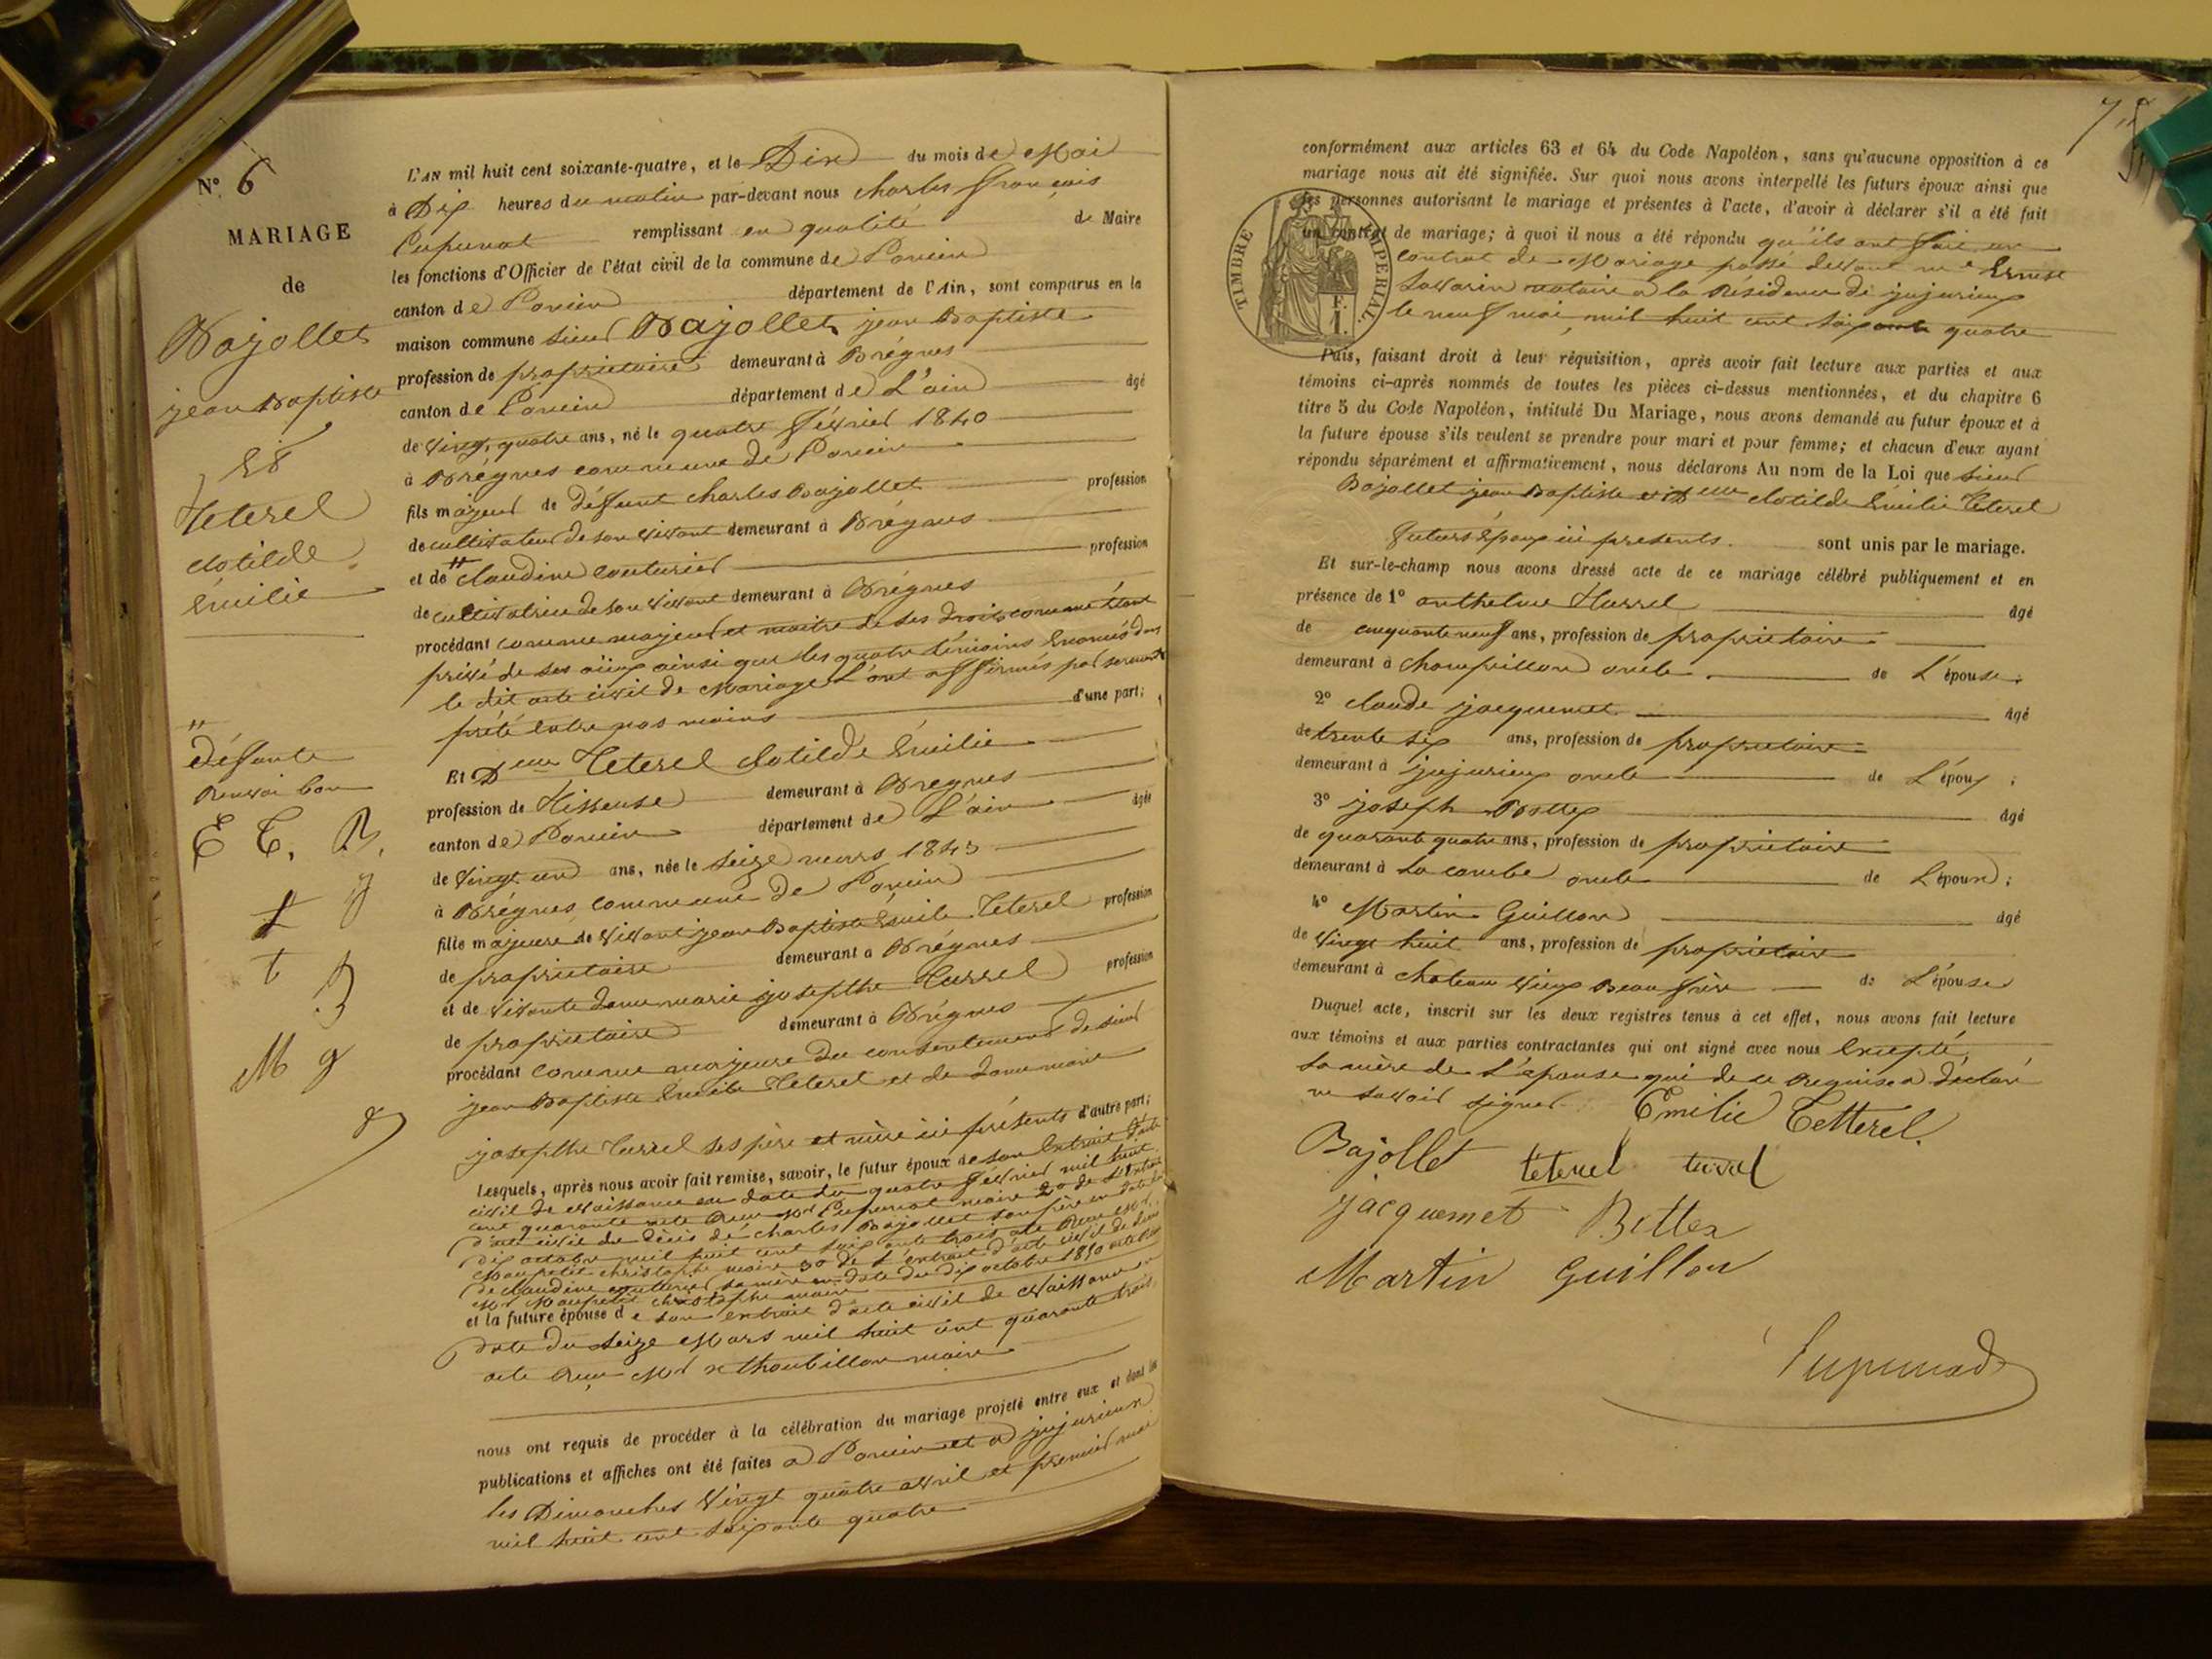 N°. 6
MARIAGE
de
Bajollet
jean Baptiste
Et
Teterel
clotilde
Émilie
"
déffunte
Renvoi bon
E T. B.
J
t B
M g
L'AN mil huit cent soixante-quatre, et le Dix du mois de Mai
à Dix heures du matin par-devant nous charles françois
remplissant en qualité de Maire
les fonctions d'Officier de l'état civil de la commune de Poncin
canton de Poncin département de l'Ain, sont comparus en la
maison commune sieur Bajollet jean Baptiste
profession de propriétaire demeurant à Brégnes
canton de Poncin département de L'ain âgé
de vingt quatre ans, né le quatre février 1840
à Brégnes commune de Poncin
fils majeur de déffunt charles Bajollet profession
de cultivateur de son vivant demeurant à Brégnes
et de " claudine couturier profession
de cultivatrice de son vivant demeurant à Brégnes
procédant comme majeur et maitre de ses droits comme étant
privé de ses aïeux ainsi que les quatre témoins énoncés dans
le dit acte civil de Mariage L'ont affirmés par serment
prêté entre nos mains d'une part;
Et Delle Teterel clotilde Émilie
profession de Tisseuse demeurant à Brégnes
canton de Poncin département de L'ain âgée
de vingt un ans, née le seize mars 1843
à Brégnes commune de Poncin
fille majeure de vivant jean Baptiste Émile Teterel profession
de propriétaire demeurant à Brégnes
et de vivante dame marie josepthe Turrel profession
de propriétaire demeurant à Brégnes
procédant comme majeure du consentement de sieur
jean Baptiste Émile Teterel et de dame marie
josepthe Turrel ses père et mère ici présents d'autre part;
Lesquels, après nous avoir fait remise, savoir, le futur époux de son Extrait d'acte
civil de Naissance en date du quatre février mil huit
cent quarante acte Reçu Mr maire 2° de L'Extrait
d'acte civil de décès de charles Bajollet son père en date du
dix octobre mil huit cent soixante trois acte Reçu Mr
Maupetit christophe maire 3° de L'extrait d'acte civil de décès
de claudine couturier sa mère en date du dix octobre 1850 acte Reçu
Mr Maupetit christophe maire
et la future épouse de son extrait d'acte civil de Naissance en
date du seize Mars mil huit cent quarante trois
acte Reçu Mr maire
nous ont requis de procéder à la célébration du mariage projeté entre eux et dont les
publications et affiches ont été faites a Poncin et a jujurieux
les Dimanches Vingt quatre avril et premier mai
mil huit cent soixante quatre
conformément aux articles 63 et 64 du Code Napoléon, sans qu'aucune opposition à ce
mariage nous ait été signifiée. Sur quoi nous avons interpellé les futurs époux ainsi que
les personnes autorisant le mariage et présentes à l'acte, d'avoir à déclarer s'il a été fait
un contrat de mariage; à quoi il nous a été répondu qu'ils ont fait un
contrat de Mariage passé devant me Ernest
Savarin notaire a la Résidence de jujurieux
le neuf mai mil huit cent soixante quatre
TIMBRE IMPÉRIAL.
F.
1.
Puis, faisant droit à leur réquisition, après avoir fait lecture aux parties et aux
témoins ci-après nommés de toutes les pièces ci-dessus mentionnées, et du chapitre 6
titre 5 du Code Napoléon, intitulé Du Mariage, nous avons demandé au futur époux et à
la future épouse s'ils veulent se prendre pour mari et pour femme; et chacun d'eux ayant
répondu séparément et affirmativement, nous déclarons Au nom de la Loi que sieur
Bajollet jean Baptiste et Delle clotilde Émilie Teterel
futurs Époux ici présents. sont unis par le mariage.
Et sur-le-champ nous avons dressé acte de ce mariage célébré publiquement et en
présence de 1° anthelme Turrel âgé
de cinquante neuf ans, profession de propriétaire
demeurant à oncle de L'épouse;
2° claude jacquemet âgé
de trente six ans, profession de propriétaire
demeurant à jujurieux oncle de L'époux;
3° joseph Bottex âgé
de quarante quatre ans, profession de propriétaire
demeurant à La combe oncle de L'époux;
4° Martin Guillon âgé
de vingt huit ans, profession de propriétaire
demeurant à chateau vieux Beau frère de L'épouse
Duquel acte, inscrit sur les deux registres tenus à cet effet, nous avons fait lecture
aux témoins et aux parties contractantes qui ont signé avec nous Excepté
la mère de L'épouse qui de ce Requise a déclaré
ne savoir signer. Emilie Tetterel.
Bajollet teterel turrel
jacquemet Bottex
Martin Guillon